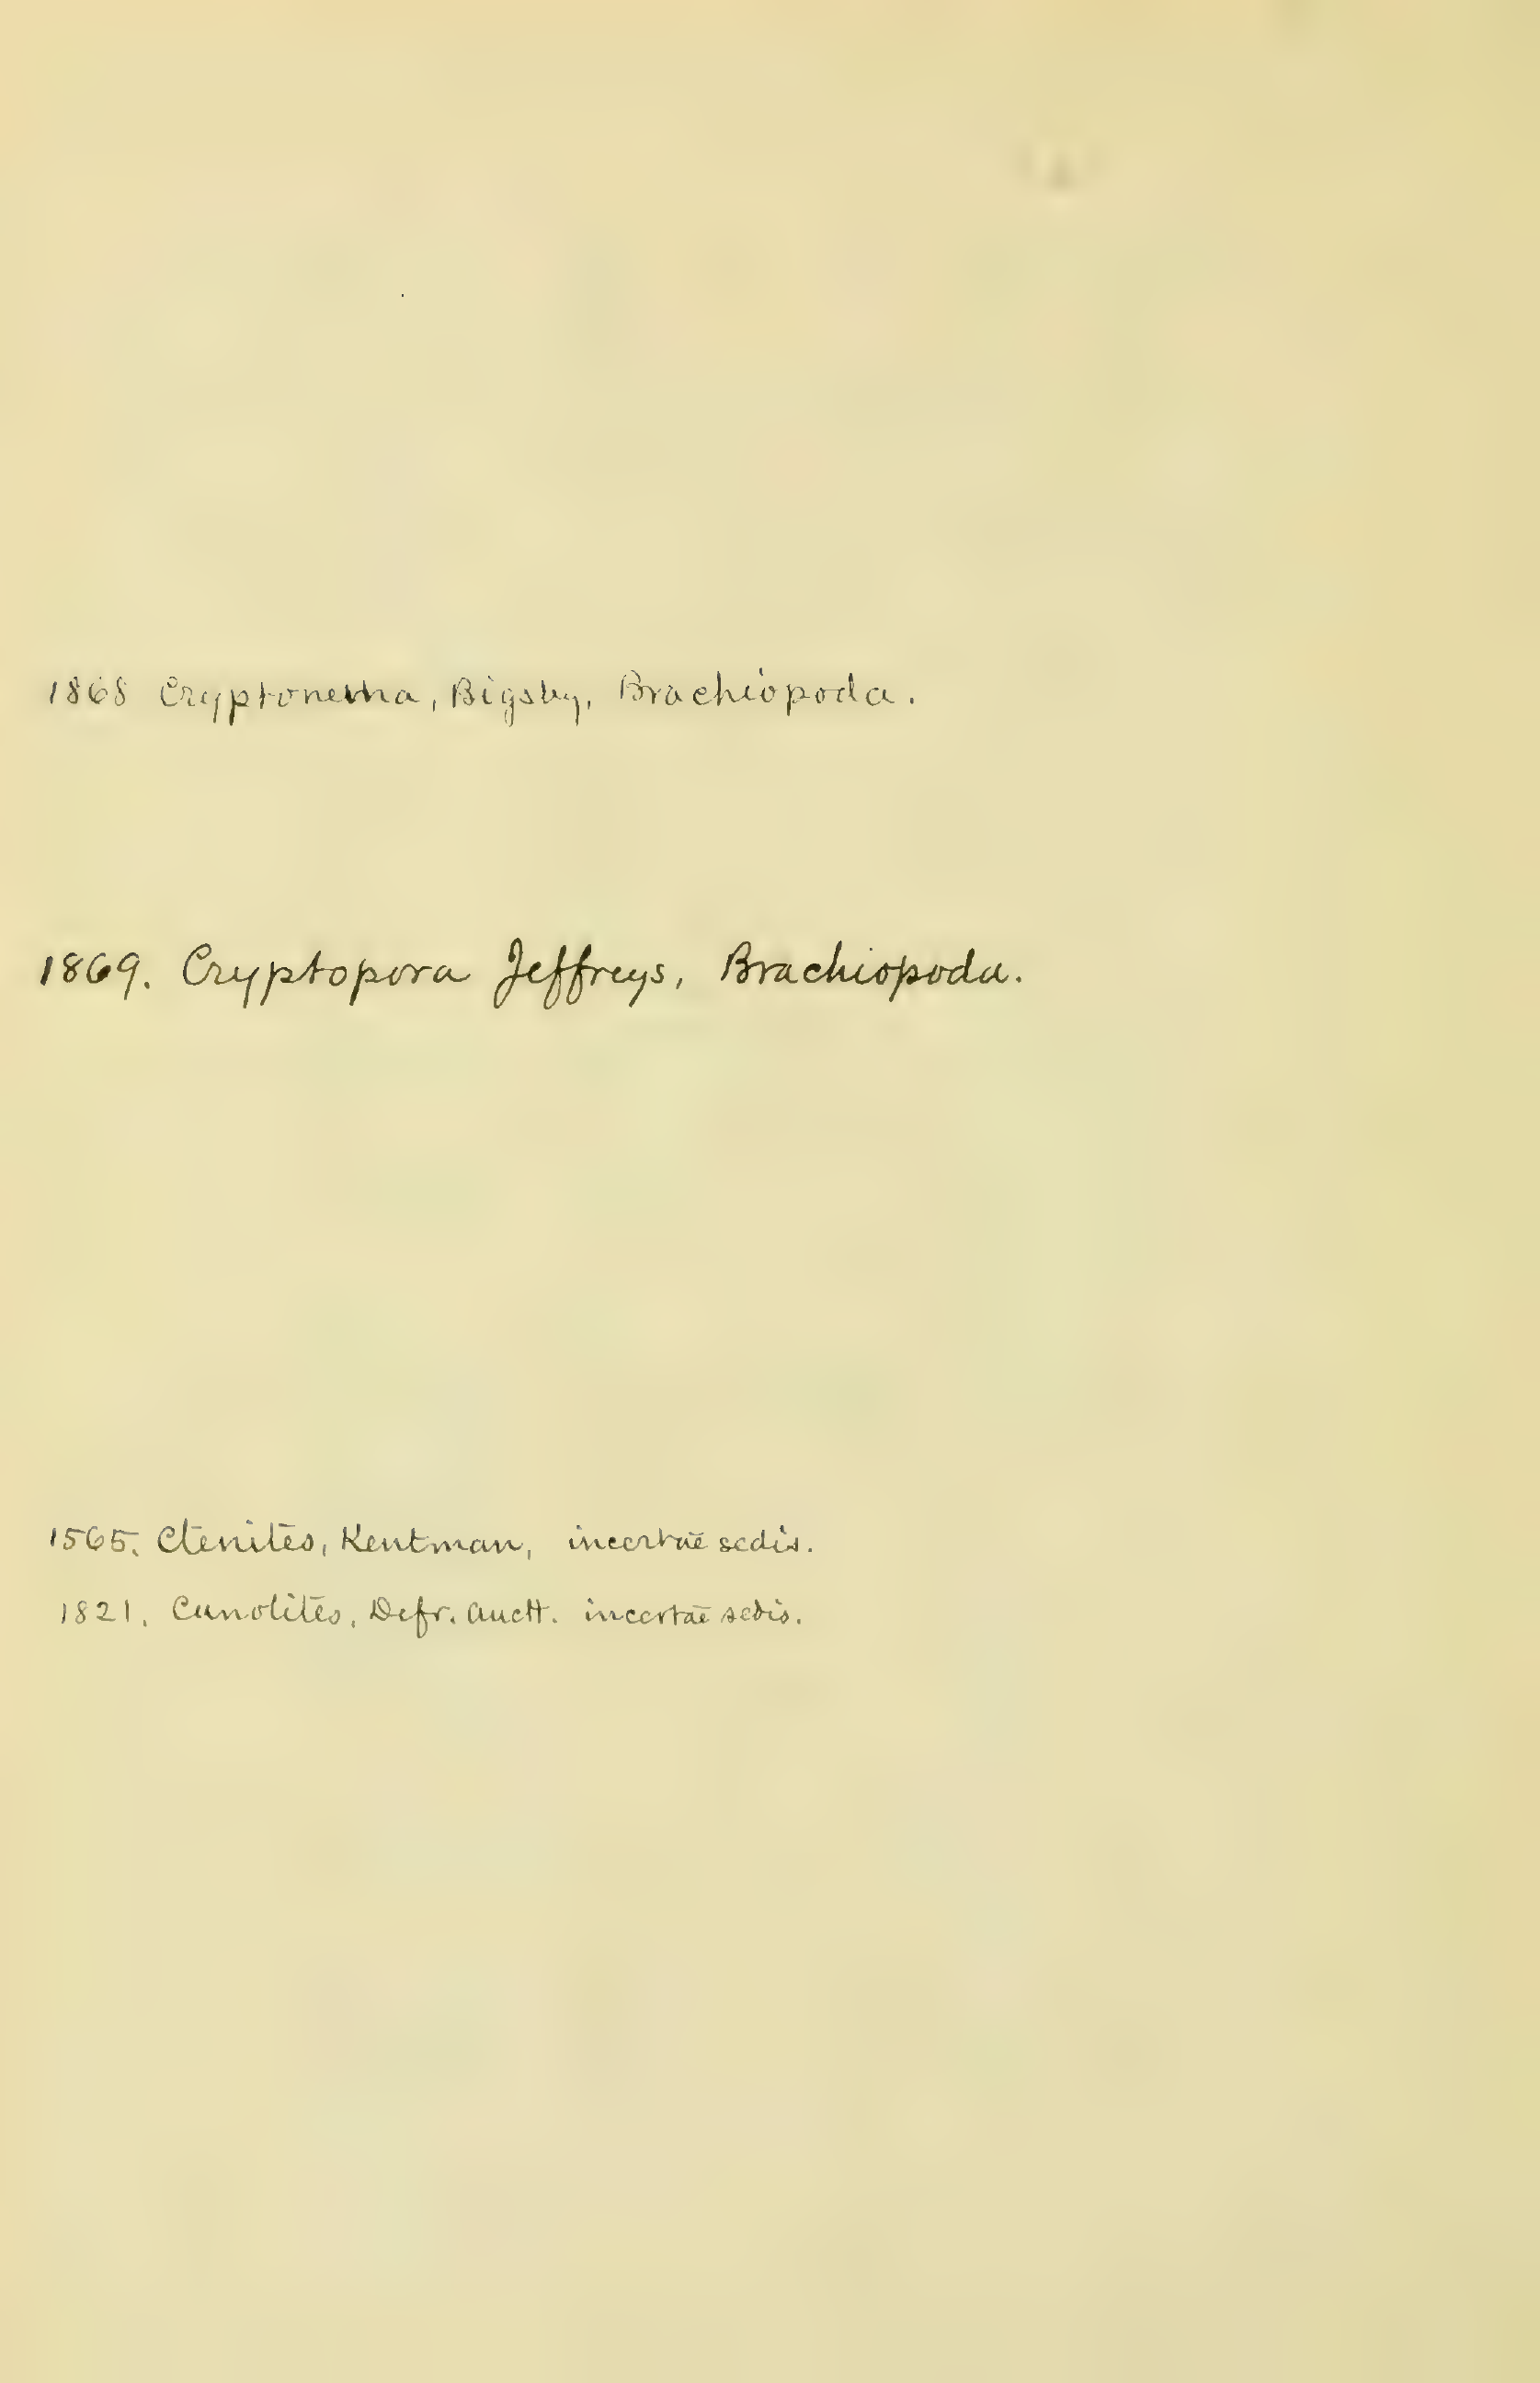 1868 Cryptonema, Bigsby, Brachiopoda.
1869. Cryptopora Jeffreys, Brachiopoda.
1565. Ctenites, Kentman, incertae sedis.
1821. Cunolites, Defr. auctt. incertae sedis.